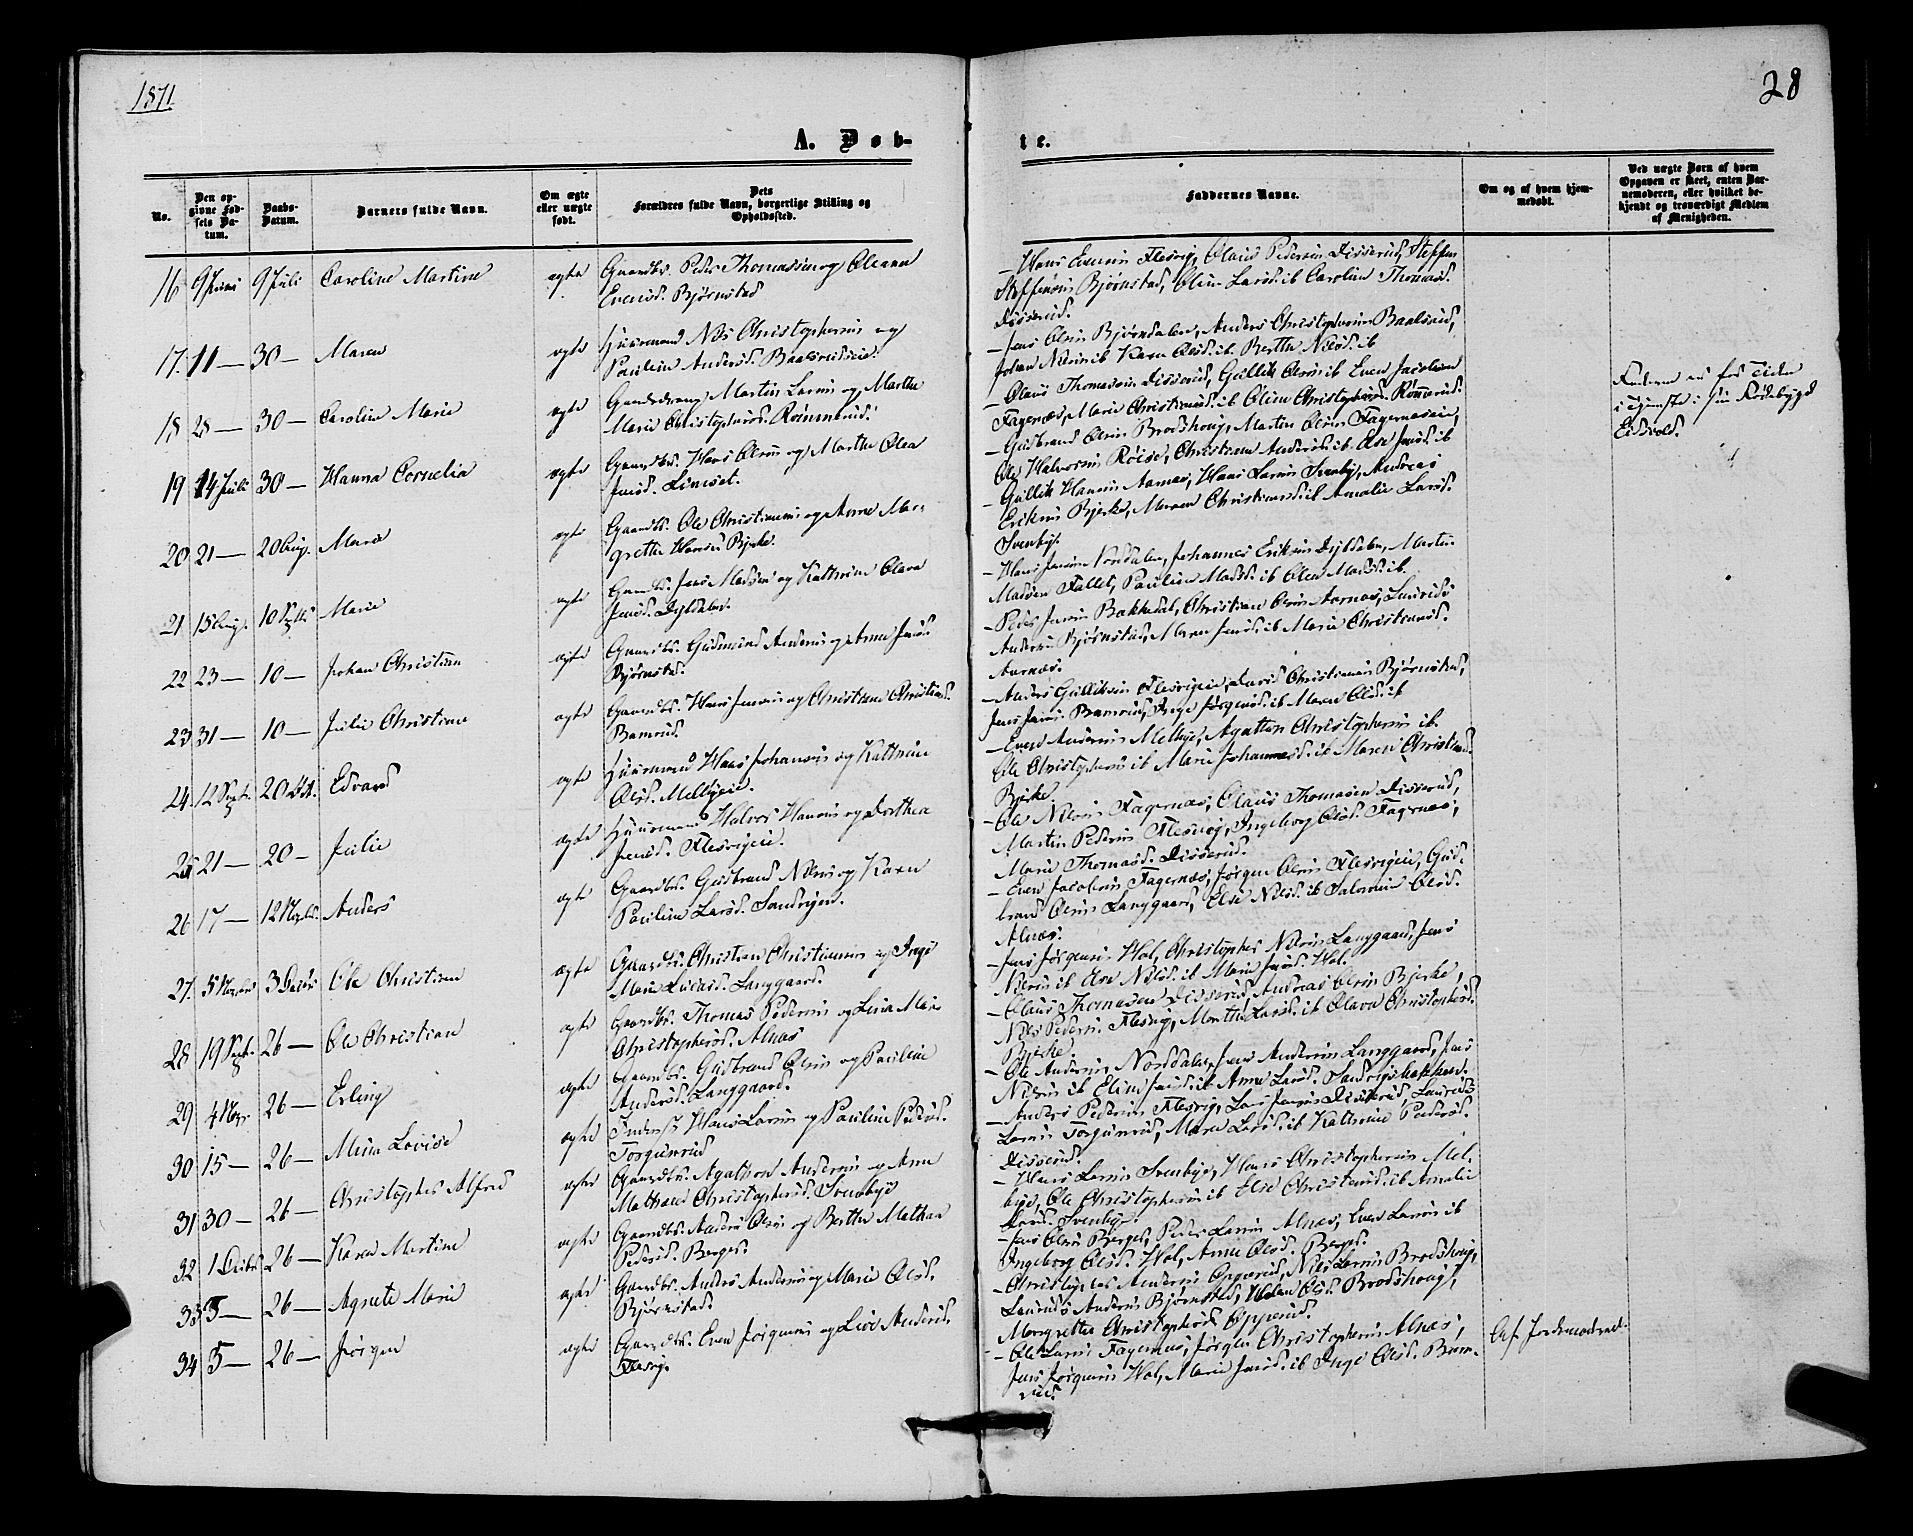 1871.
28
A. Døb-
te.
No.
Den op-
givne Fød-
sels Da-
tum.
Daabs-
Datum.
Barnets fulde Navn.
Om ægte
eller uægte
født.
Dets
Forældres fulde Navn, borgerlige Stilling og
Opholdssted.
Faddernes Navne.
Om og af hvem hjem-
medøbt.
Ved uægte Barn af hvem
Opgaven er skeet, enten Bar-
nemoderen, eller hvilket be-
kjendt og troværdigt Medlem
af Menigheden.
16 9 Juni 9 Juli Caroline Martine ægte Gaardbr. Peder Thomassen og Oleana
Evensd. Bjørnstad
- Hans Evensen Flesvig, Olaus Pedersen Disserud, Steffen
Steffensen Bjørnstad, Oline Larsd. ib Caroline Thomasd.
Disserud.
17. 11 — 30 — Maren ægte Huusmand Nils Christophersen og
Pauline Andersd. Baalsrudeie.
- Jens Olsen Bjørndalen, Anders Christophersen Baalsrud,
Johan Nilsen ib Karen Olsd. ib. Berthe Nilsd. ib
18 28 — 30 — Caroline Marie ægte Gaardsdreng Martin Larsen og Marthe
Marie Christophersd. Rømmerud.
- Olaus Thomassen Disserud, Gullik Olsen ib Even Jacobsen
Fagernæs, Marie Christiansd. ib Oline Christophersd. Rømmerud.
Faderen er for Tiden
i Tjeneste i sin Fødebygd
Eidsvold.
19 14 Juli 30 — Hanna Cornelia ægte Gaardbr. Hans Olsen og Marthe Olea
Jensd. Linnset.
- Gudbrand Olsen Brodshoug, Martin Olsen Fagernæseie,
Ole Halvorsen Røise, Christiane Andersd. ib Else Jensd. ib
20 21 — 20 Aug. Maria ægte Gaardbr. Ole Christiansen og Anne Mar-
grethe Hansd. Bjerke.
- Gullik Hansen Aarnæs, Hans Larsen Svenby, Andreas
Eriksen Bjerke, Maren Christiansd. ib Amalie Larsd.
Svenby.
21 15 Aug. 10 Septbr Marie ægte Gaardbr. Jens Madsen og Kathrine Olava
Jensd. Dyldalen.
- Hans Jensen Norddalen, Johannes Eriksen Dyldalen, Martin
Madsen Fallet, Pauline Madsd. ib Olea Madsd. ib
22 23 — 10 — Johan Christian ægte Gaardbr. Gudmund Andersen og Anne Jensd.
Bjørnstad.
- Peder Jensen Bakkedal, Christian Olsen Aarnæs, Lauridts
Andersen Bjørnstad, Maren Jensd. ib Marie Christiansd.
Aarnæs.
23 31 — 10 — Julie Christiane ægte Gaardbr. Hans Jensen og Christiane Christiansd.
Bamrud.
- Anders Gulliksen Flesvigeie, David Christiansen Bjørnstad,
Jens Jensen Bamrud, Inge Jørgensd. ib Maren Olsd. ib
24 12 Sept. 20 Oct. Edvard ægte Huusmand Hans Johansen og Kathrine
Olsd. Melbyeie.
- Even Andersen Melbye, Agathon Christophersen ib.
Ole Christophersen ib Marie Johannesd. ib Maren Christiansd.
Bjerke.
25 21 — 20 — Julie ægte Huusmand Halvor Hansen og Dorthea
Jensd. Flesvigeie.
- Ole Nilsen Fagernæs, Olaus Thomasen Disserud,
Martin Pedersen Flesvig, Ingeborg Olsd. Fagernæs,
Marie Thomasd. Disserud.
26 17 — 12 Novbr. Anders ægte Gaardbr. Gudbrand Nilsen og Karen
Pauline Larsd. Sandvigen.
- Even Jacobsen Fagernæs, Jørgen Olsen Flesvigeie, Gud-
brand Olsen Langgaard, Else Nilsd. ib Salomine Olsd.
Alnæs.
27. 5 Novbr 3 Decbr Ole Christian ægte Gaardbr. Christian Christiansen og Inge
Marie Larsd. Langgaard.
- Jens Jørgensen Hol, Christopher Nilsen Langgaard, Jens
Nilsen ib Else Nilsd. ib Marie Jensd. Hol.
28 19 Sept. 26 — Ole Christian ægte Gaardbr. Thomas Pedersen og Lina Marie
Christophersd. Alnæs
- Olaus Thomasen Disserud, Andreas Olsen Bjerke,
Nils Pedersen Flesvig, Marthe Larsd. ib Olava Christophersd.
Bjerke.
29 4 Nov. 26 — Erling ægte Gaardbr. Gudbrand Olsen og Pauline
Andersd. Langgaard.
- Ole Andersen Norddalen, Jens Andersen Langgaard, Jens
Nilsen ib Eline Jensd. ib Anne Larsd. Sandvigshakken.
30 15 — 26 — Mina Lovise ægte Hans Larsen og Pauline Pedersd.
Torgunrud
- Anders Pedersen Flesvig, Lars Jensen Disserud, Lauridts
Larsen Torgunrud, Maren Larsd. ib Kathrine Pedersd.
Disserud.
31 30 — 26 — Christopher Alfred ægte Gaardbr. Agathon Andersen og Anne
Mathea Christophersd. Svenbye
- Hans Larsen Svenbye, Hans Christophersen Mel-
bye, Ole Christophersen ib Else Christiansd. ib Amalie
Larsd. Svenby.
32 1 Decbr 26 — Karen Martine ægte Gaardbr. Anders Olsen og Berthe Mathea
Pedersd. Berget.
- Jens Olsen Berget, Peder Larsen Alnæs, Even Larsen ib
Ingeborg Olsd. Hol, Anne Olsd. Berget.
33 5 — 26 — Agnete Marie ægte Gaardbr. Anders Andersen og Marie Olsd.
Bjørnstad.
- Christopher Andersen Opperud, Nils Larsen Brodshoug,
Lauridts Andersen Bjørnstad, Helene Olsd. Brodshoug,
Margrethe Christophersd. Opperud.
34 5 — 26 — Jørgen ægte Gaardbr. Even Jørgensen og Lise Andersd.
Flesvig.
- Ole Larsen Fagernæs, Jørgen Christophersen Alnæs,
Jens Jørgensen Hol, Marie Jensd. ib Inge Olsd. Bam-
rud.
Af Jordemoderen.